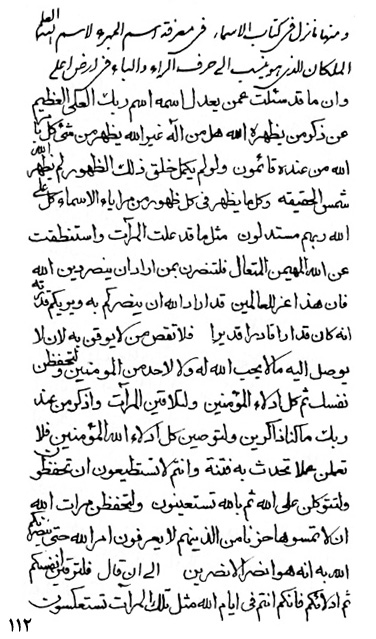 و منها نازل فی کتاب الاسماء فی معرفة اسم المجرء لاسم البهاء العلی
الملکان الذی هو ینسب الی حرف الراء والباء فی ارض اعلی
وان ما قد سئلت عمن یعدل اسمه اسم ربک العلی العظیم
عن ذکر من یظهره الله هل من اله غیر الله یظهر من شئ کل بامر
الله من عنده قائمون ولو لم یکمل خلق ذلک الظهور لم یظهر الله
شمس الحقیقه وکل ما یظهر فی کل ظهور من مرایاء الاسماء کل علی
الله ربهم مستدلون مثل ما قد علت المرآت واستنطقت
عن الله المهیمن المتعال فلتنصرن بمن اراد ان ینصر دین الله
فان هذا عز للعالمین قد اراد الله ان ینصرکم به ویویکم قدرته
انه کان قدارا قادرا قدیرا فلا تقص من لا یوقن به لان لا
یوصل الیه ما لا یحب الله له ولا لاحد من المومنین ولتحفظن
نفسک ثم کل ادلاء المؤمنین ولتلاقین المرآت واذکر من عند
ربک ما کنا ذاکرین ولتوصین کل ادلاء الله المؤمنین فلا
تعلن عملا تحدث به فتنة وانتم لا تستطیعون ان تحفظون
ولتتوکلن علی الله ثم بالله تستعینون ولتحفظن مرات الله
ان لا تمسوها حزنا من الذینهم لا یعرفون امر الله حتی ینصرنکم
الله به انه هو انصر الانصرین الی ان قال فلترقین انفسکم
ثم ادلائکم فانکم انتم فی ایام الله مثل تلک المرات تستعکسون
۱۱۲